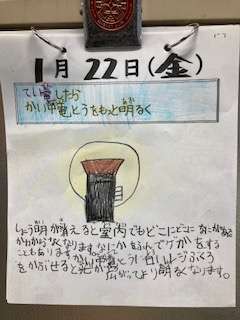 1月22日(金)
てい電したら
かい中電とうをもっと明るく
しょう明が消えると室内でもどこになにがあるか
わからなくなります。なにかをふんでケガをする
こともあります。かい中電とうに白いレジぶくろ
をかぶせると光が広がってより明るくなります。